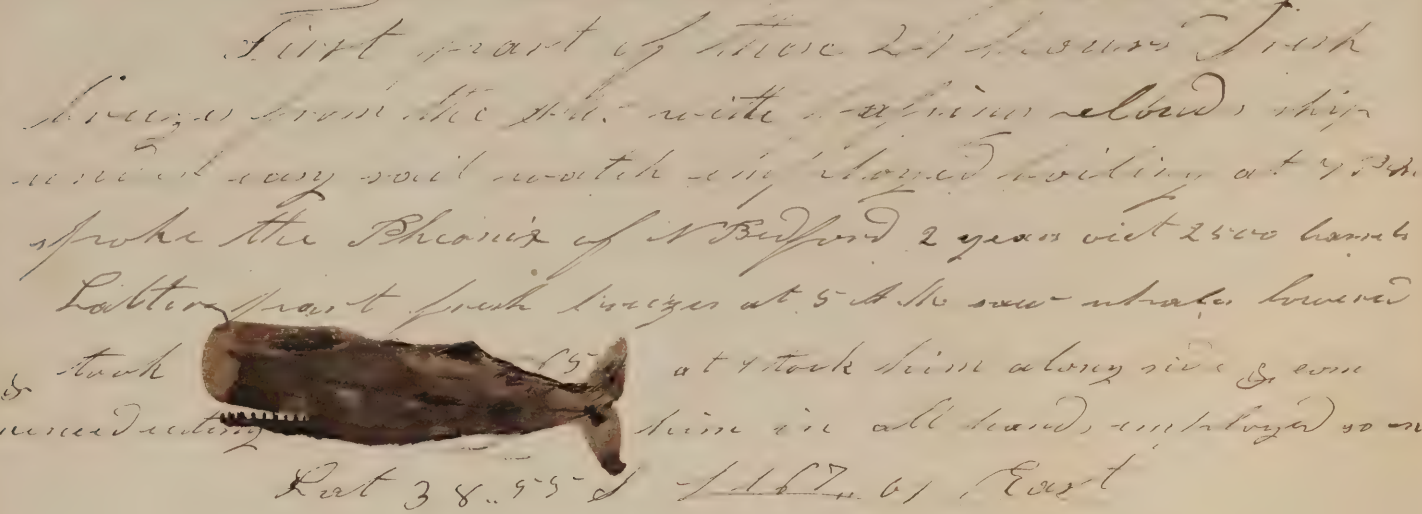 First part of these 24 hours Fresh
breezes from the with passing clouds ship
under easy sail watch imployed boiling at 7 P.M.
spoke the Pheonix of N Bedford 2 years out 2500 barrels
Latter part fresh breezes at 5 A.M. saw whales lowered
& took at 7 took him along side & com
menced cuting him in all hands imployed so
Lat 38..55 S 167.. 01 East